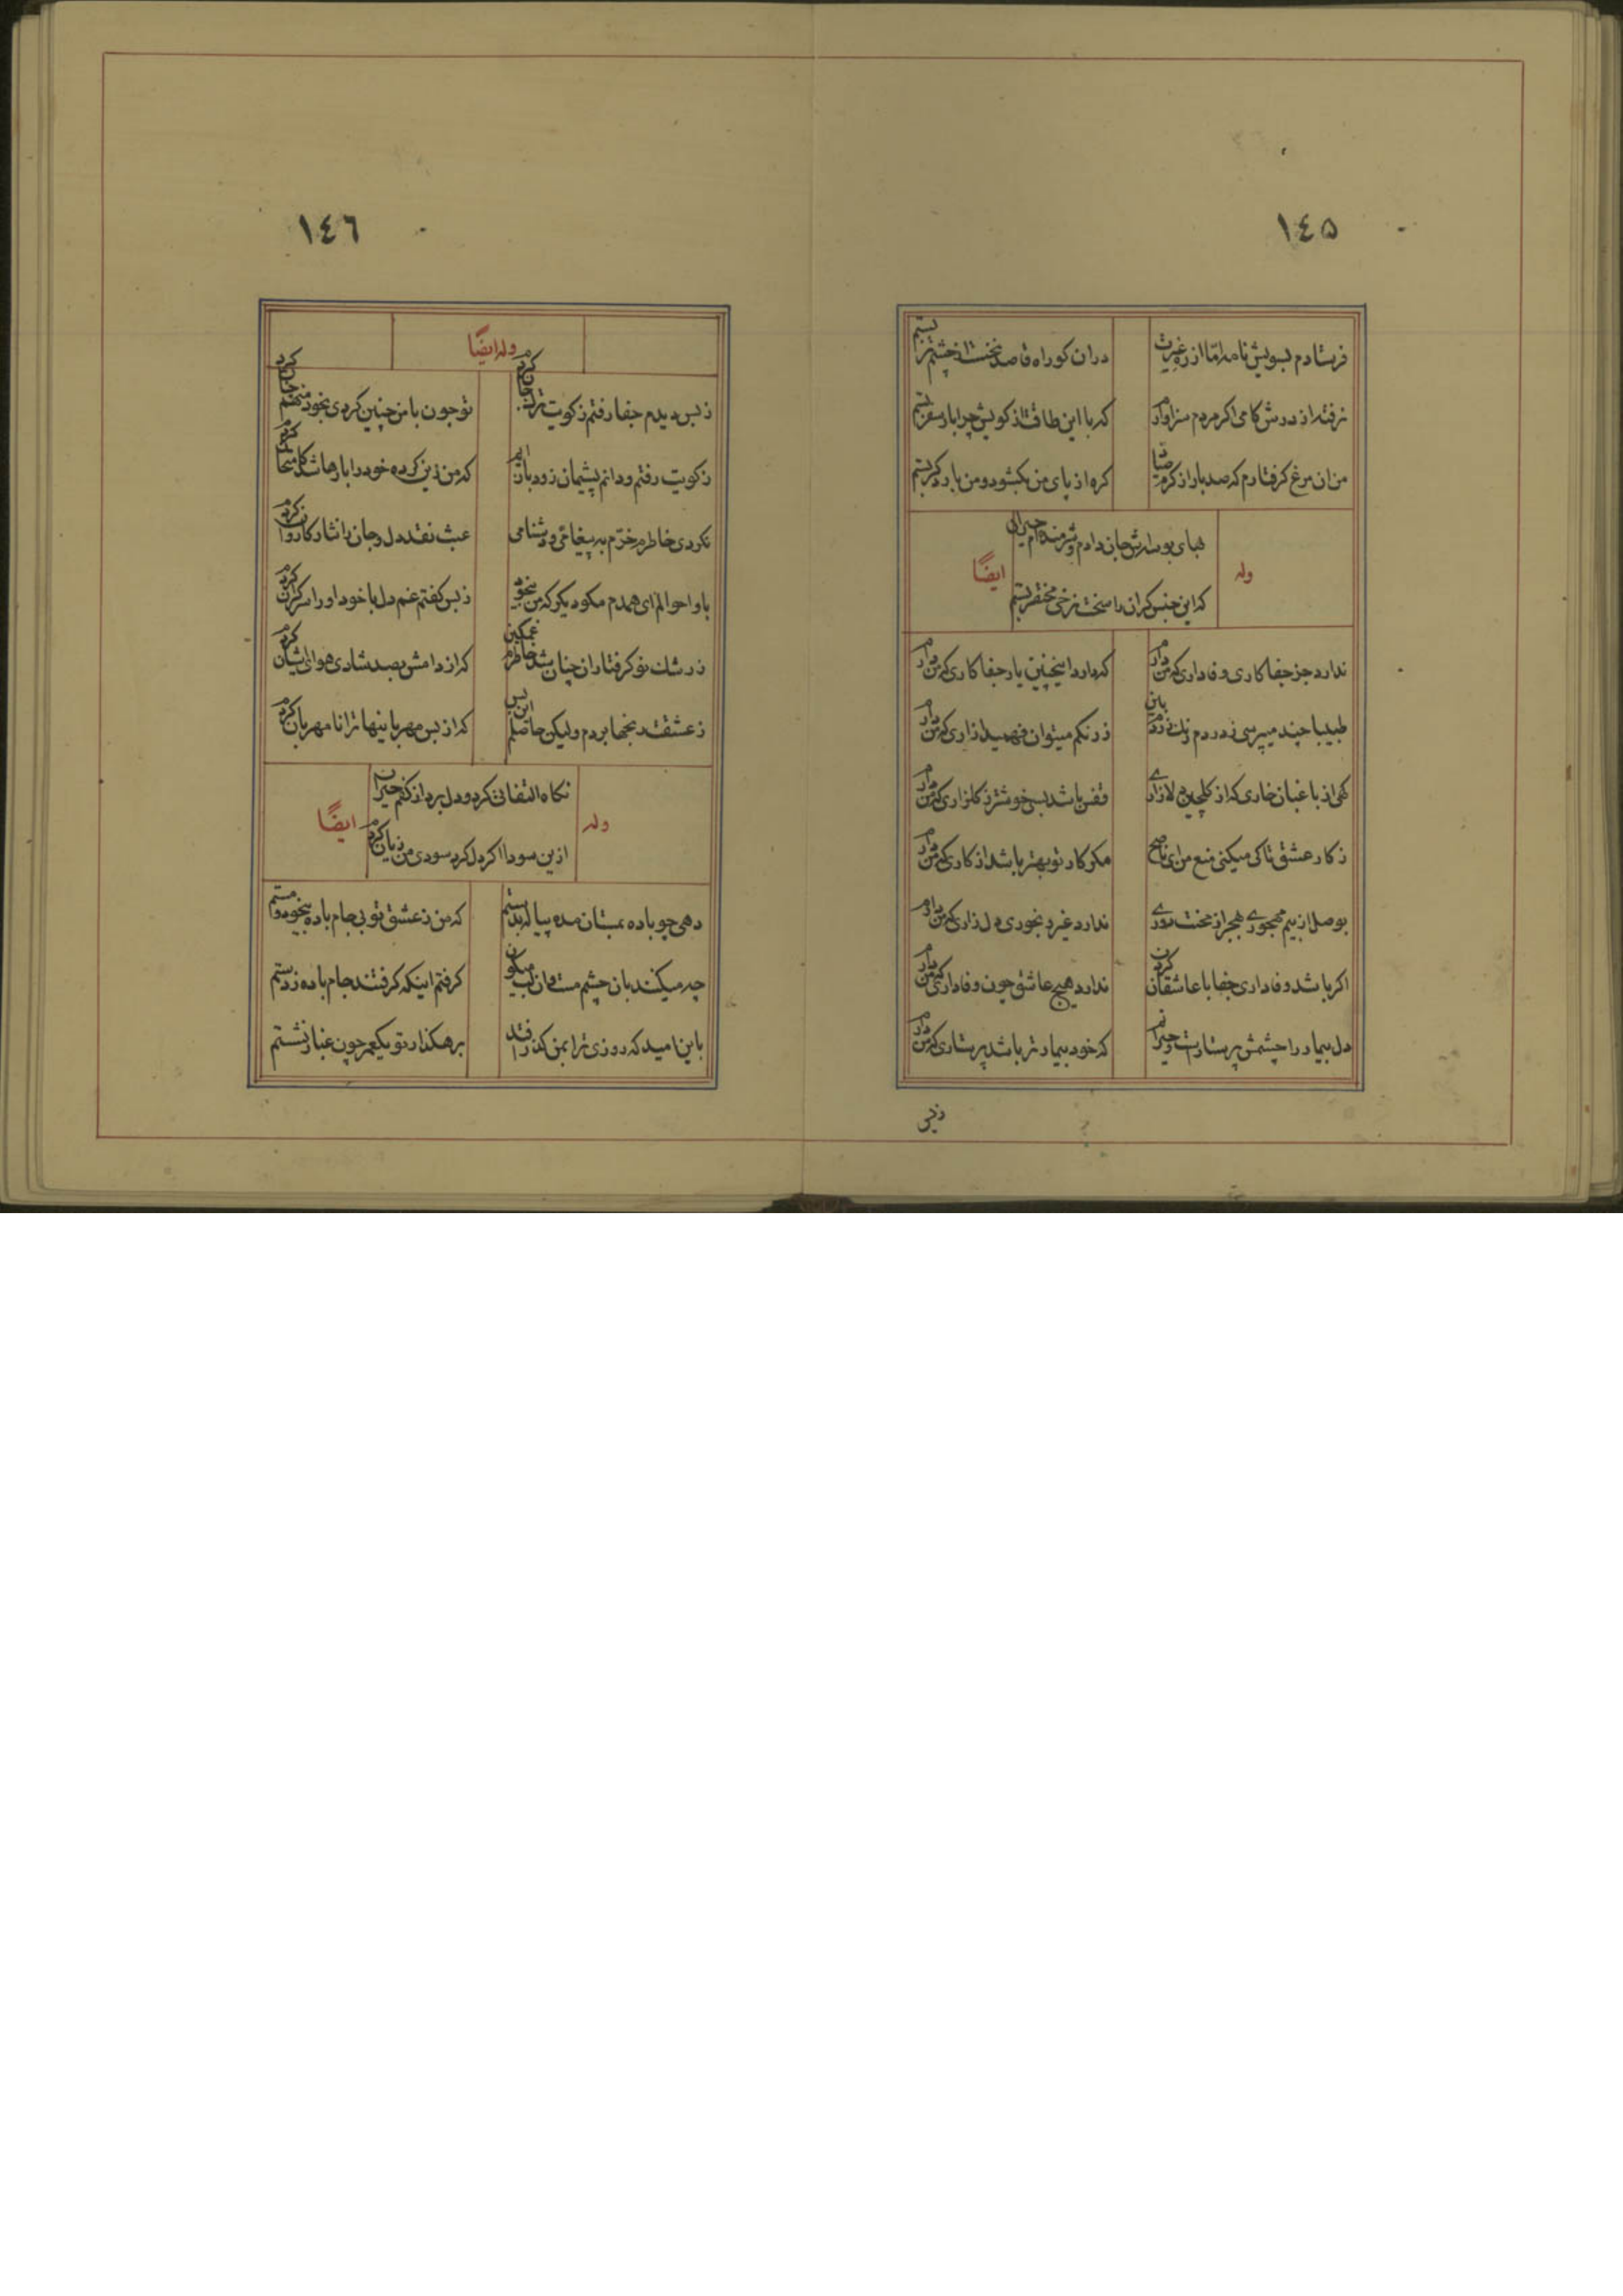 ١٤٥
فرستادم بسویش نامه امّا از ره غیرت
دران کو راه قاصد نخست از چشم تر بستم
نرفته از درش کامی اکر مردم سزاوارم
که با این طاقت از کویش چرا بار سفر بستم
من ان مرغ کرفتارم که صد بار از کرم صیاد
کره از پای من بکشود و من بار دکر بستم
بهای بوسه‌اش جان دادم و شرمنده‌ام حیران
وله ایضًا
که این جنس کران را سخت نرخی مختصر بستم
ندارد جز جفا کاری وفاداری که من دارم
که دارد اینچنین یار جفا کاری که من دارم
طبیبا چند میپرسی ز دردم
ز رنکم میتوان فهمید ازاری که من دارم
کهی از باغبان خاری که از کلچین دلازاری
قفس باشد بسی خوشتر ز کلزاری که من دارم
ز کار عشق تا کی میکنی منع من ای ناصح
مکو کار تو بهتر باشد از کاری که من دارم
بوصل از بیم مهجوری بهجر از محنت دوری
ندارد غیر رنجوری دل زاری که من دارم
اکر باشد وفاداری جفا با عاشقان کردن
ندارد هیچ عاشق چون وفاداری که من دارم
دل بیمار را چشمش پرستارست و حیرانم
که خود بیمارتر باشد پرستاری که من دارم
ز بس
١٤٦
وله ایضًا
ز بس دیدم جفا رفتم ز کویت ترک جان کردم
تو چون با من چنین کردی بخود منهم چنان کردم
ز کویت رفتم و دانم پشیمان زود باز ایم
که من زین کرده خود را بارها شد کامتحان کردم
نکردی خاطرم خرّم به پیغامی و دشنامی
عبث نقد دل و جان را نثار کاروان کردم
باو احوالم ای همدم مکو دیکر که من بیخود
ز بس کفتم غم دل با خود او را سرکران کردم
ز رشک نو کرفتاران چنان شد خاطرم غمکین
که از دامش بصد شادی هوای اشیان کردم
ز عشقت رنجها بردم ولیکن حاصلم این بس
که از بس مهربانیها ترا نامهربان کردم
نکاه التفاتی کرد و دل برد از کفم حیران
وله ایضًا
ازین سودا اکر دل کرد سودی من زیان کردم
دهی چو باده بمستان مده پیاله بدستم
که من ز عشق تو بی جام باده بیخود و مستم
چه میکنند بان چشم مست و ان لب میکون
کرفتم اینکه کرفتند جام باده ز دستم
باین امید که روزی ترا بمن کذر افتد
برهکذار تو یکعمر چون غبار نشستم